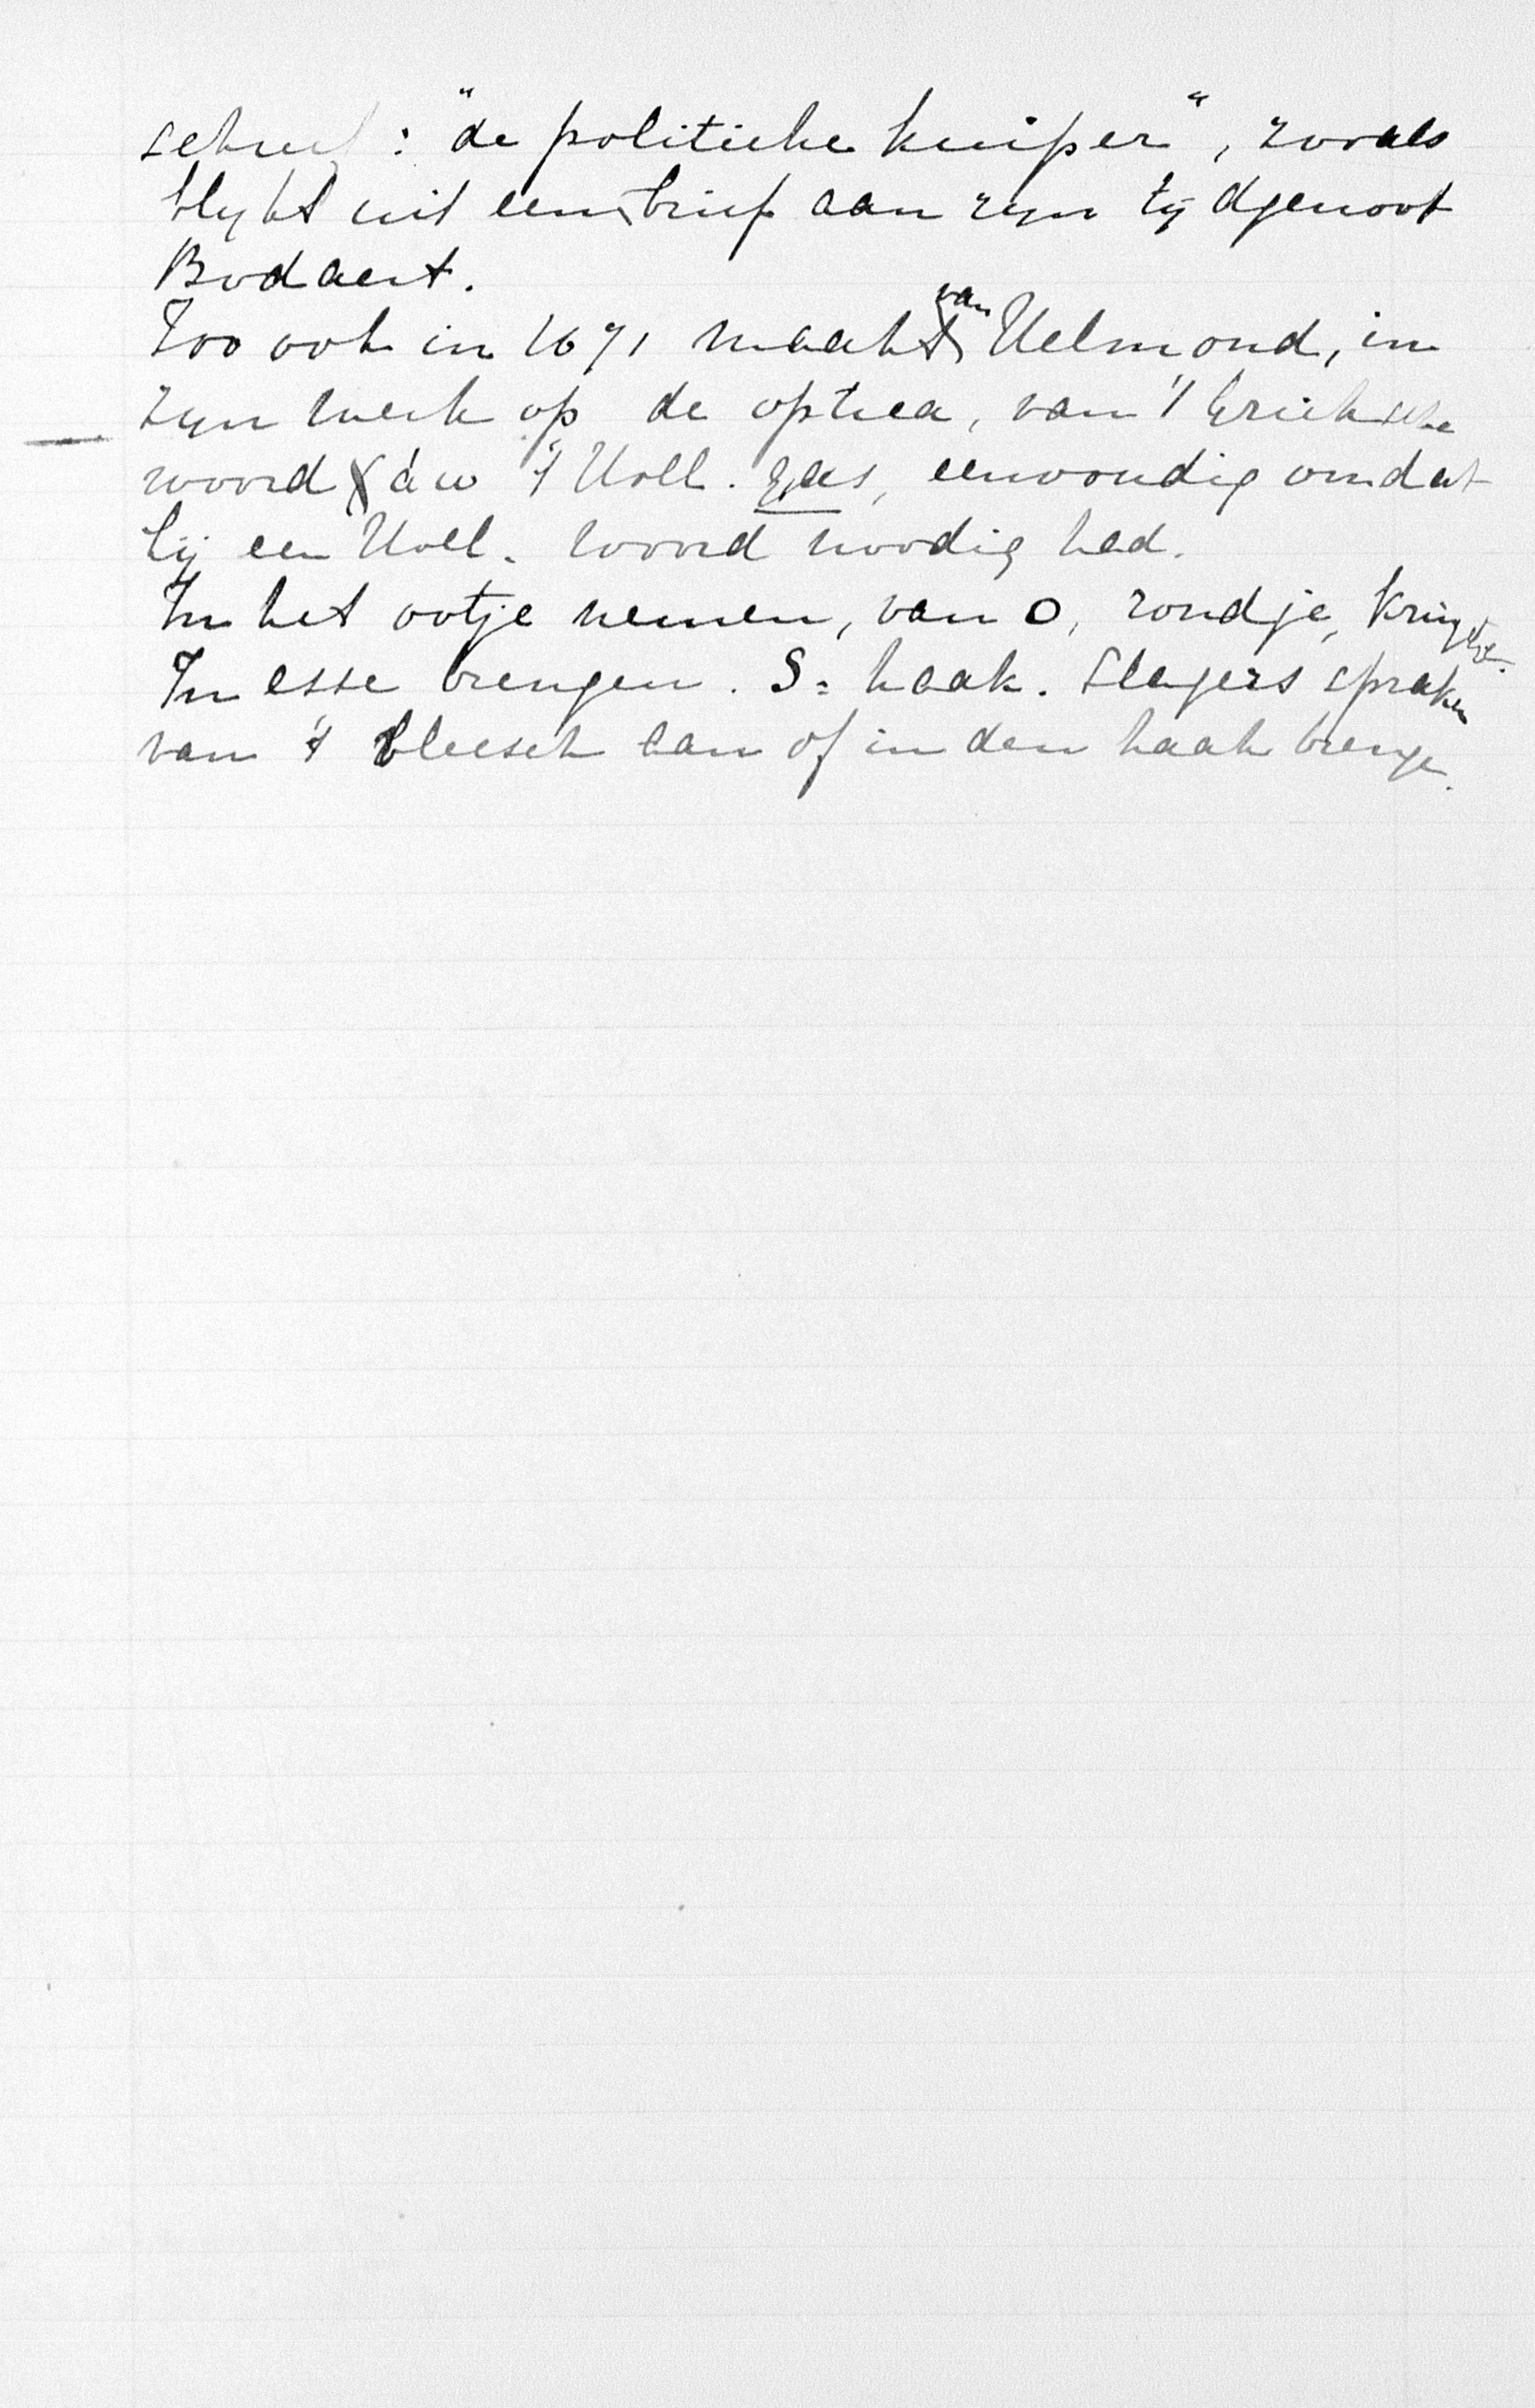 schreef: "de politieke kuiper", zooals
blykt uit een brief aan zyn tijdgenoot
Bodaert.
Zoo ook in 1671 maakt van Helmond, in
zyn werk op de optica, van 't Grieksche
woord χάω 't Holl. gas, eenvoudig omdat
hij een Holl. woord noodig had.
In het ootje nemen, van O, rondje, kringetje.
In esse brengen. S = haak. Slagers spraken
van 't vleesch aan of in den haak brengen.